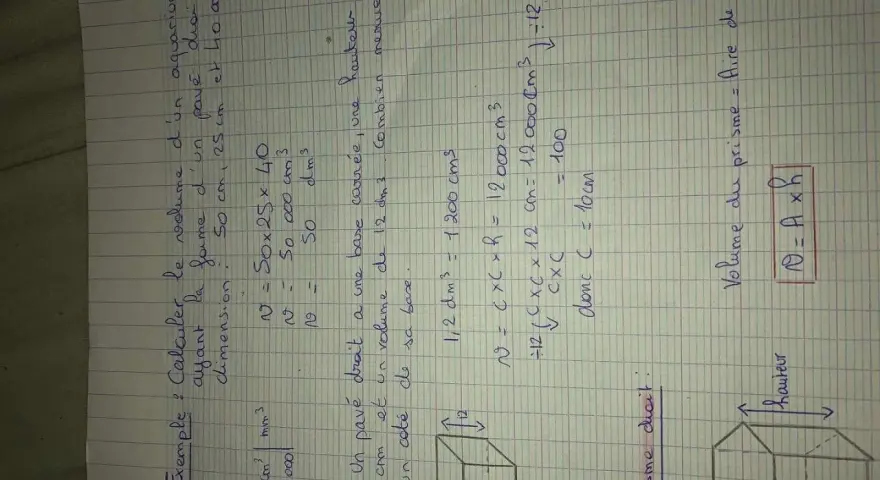 Exemple : Calculer le volume d'un aquarium
ayant la forme d'un pavé droi
dimension : 50 cm, 25 cm et 40 c
v = 50 x 25 x 40
cm³ | mm³
v = 50 000 cm³
000 |
v = 50 dm³
Un pavé droit a une base carrée, une hauteur
cm et un volume de 12 dm³. Combien mesure
un côté de sa base.
12
1,2 dm³ = 1 200 cm³
v = c x c x h = 12 000 cm³
÷12 ( c x c x 12 cm = 12 000 cm³ ) ÷12
c x c = 100
donc c = 10 cm
me droit :
Volume du prisme = Aire de
hauteur
v = A x h